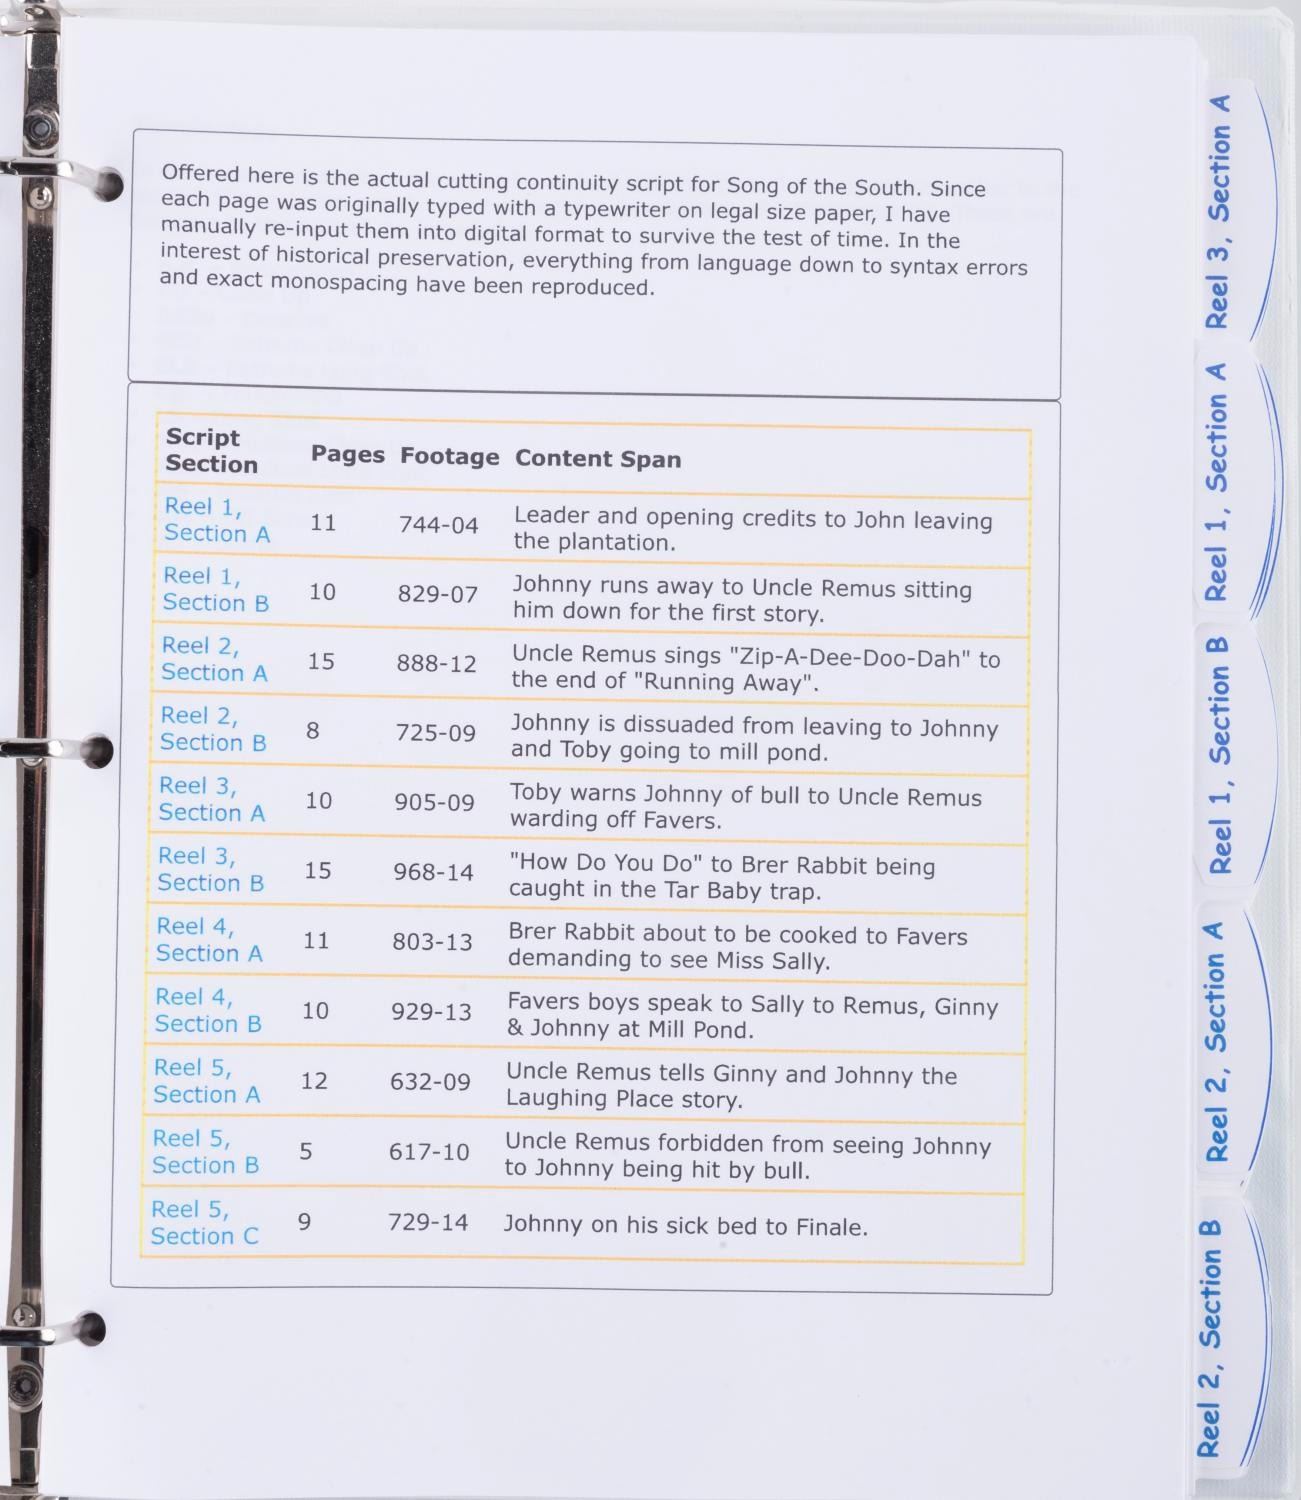 Offered here is the actual cutting continuity script for Song of the South. Since
each page was originally typed with a typewriter on legal size paper, I have
manually re-input them into digital format to survive the test of time. In the
interest of historical preservation, everything from language down to syntax errors
and exact monospacing have been reproduced.
Script
Section
Pages Footage Content Span
Reel 1,
Section A
11 744-04
Leader and opening credits to John leaving
the plantation.
Reel 1,
Section B
10 829-07
Johnny runs away to Uncle Remus sitting
him down for the first story.
Reel 2,
Section A
15 888-12
Uncle Remus sings "Zip-A-Dee-Doo-Dah" to
the end of "Running Away".
Reel 2,
Section B
8 725-09
Johnny is dissuaded from leaving to Johnny
and Toby going to mill pond.
Reel 3,
Section A
10 905-09
Toby warns Johnny of bull to Uncle Remus
warding off Favers.
Reel 3,
Section B
15 968-14
"How Do You Do" to Brer Rabbit being
caught in the Tar Baby trap.
Reel 4,
Section A
11 803-13
Brer Rabbit about to be cooked to Favers
demanding to see Miss Sally.
Reel 4,
Section B
10 929-13
Favers boys speak to Sally to Remus, Ginny
& Johnny at Mill Pond.
Reel 5,
Section A
12 632-09
Uncle Remus tells Ginny and Johnny the
Laughing Place story.
Reel 5,
Section B
5 617-10
Uncle Remus forbidden from seeing Johnny
to Johnny being hit by bull.
Reel 5,
Section C
9 729-14
Johnny on his sick bed to Finale.
Reel 3, Section A
Reel 1, Section A
Reel 1, Section B
Reel 2, Section A
Reel 2, Section B